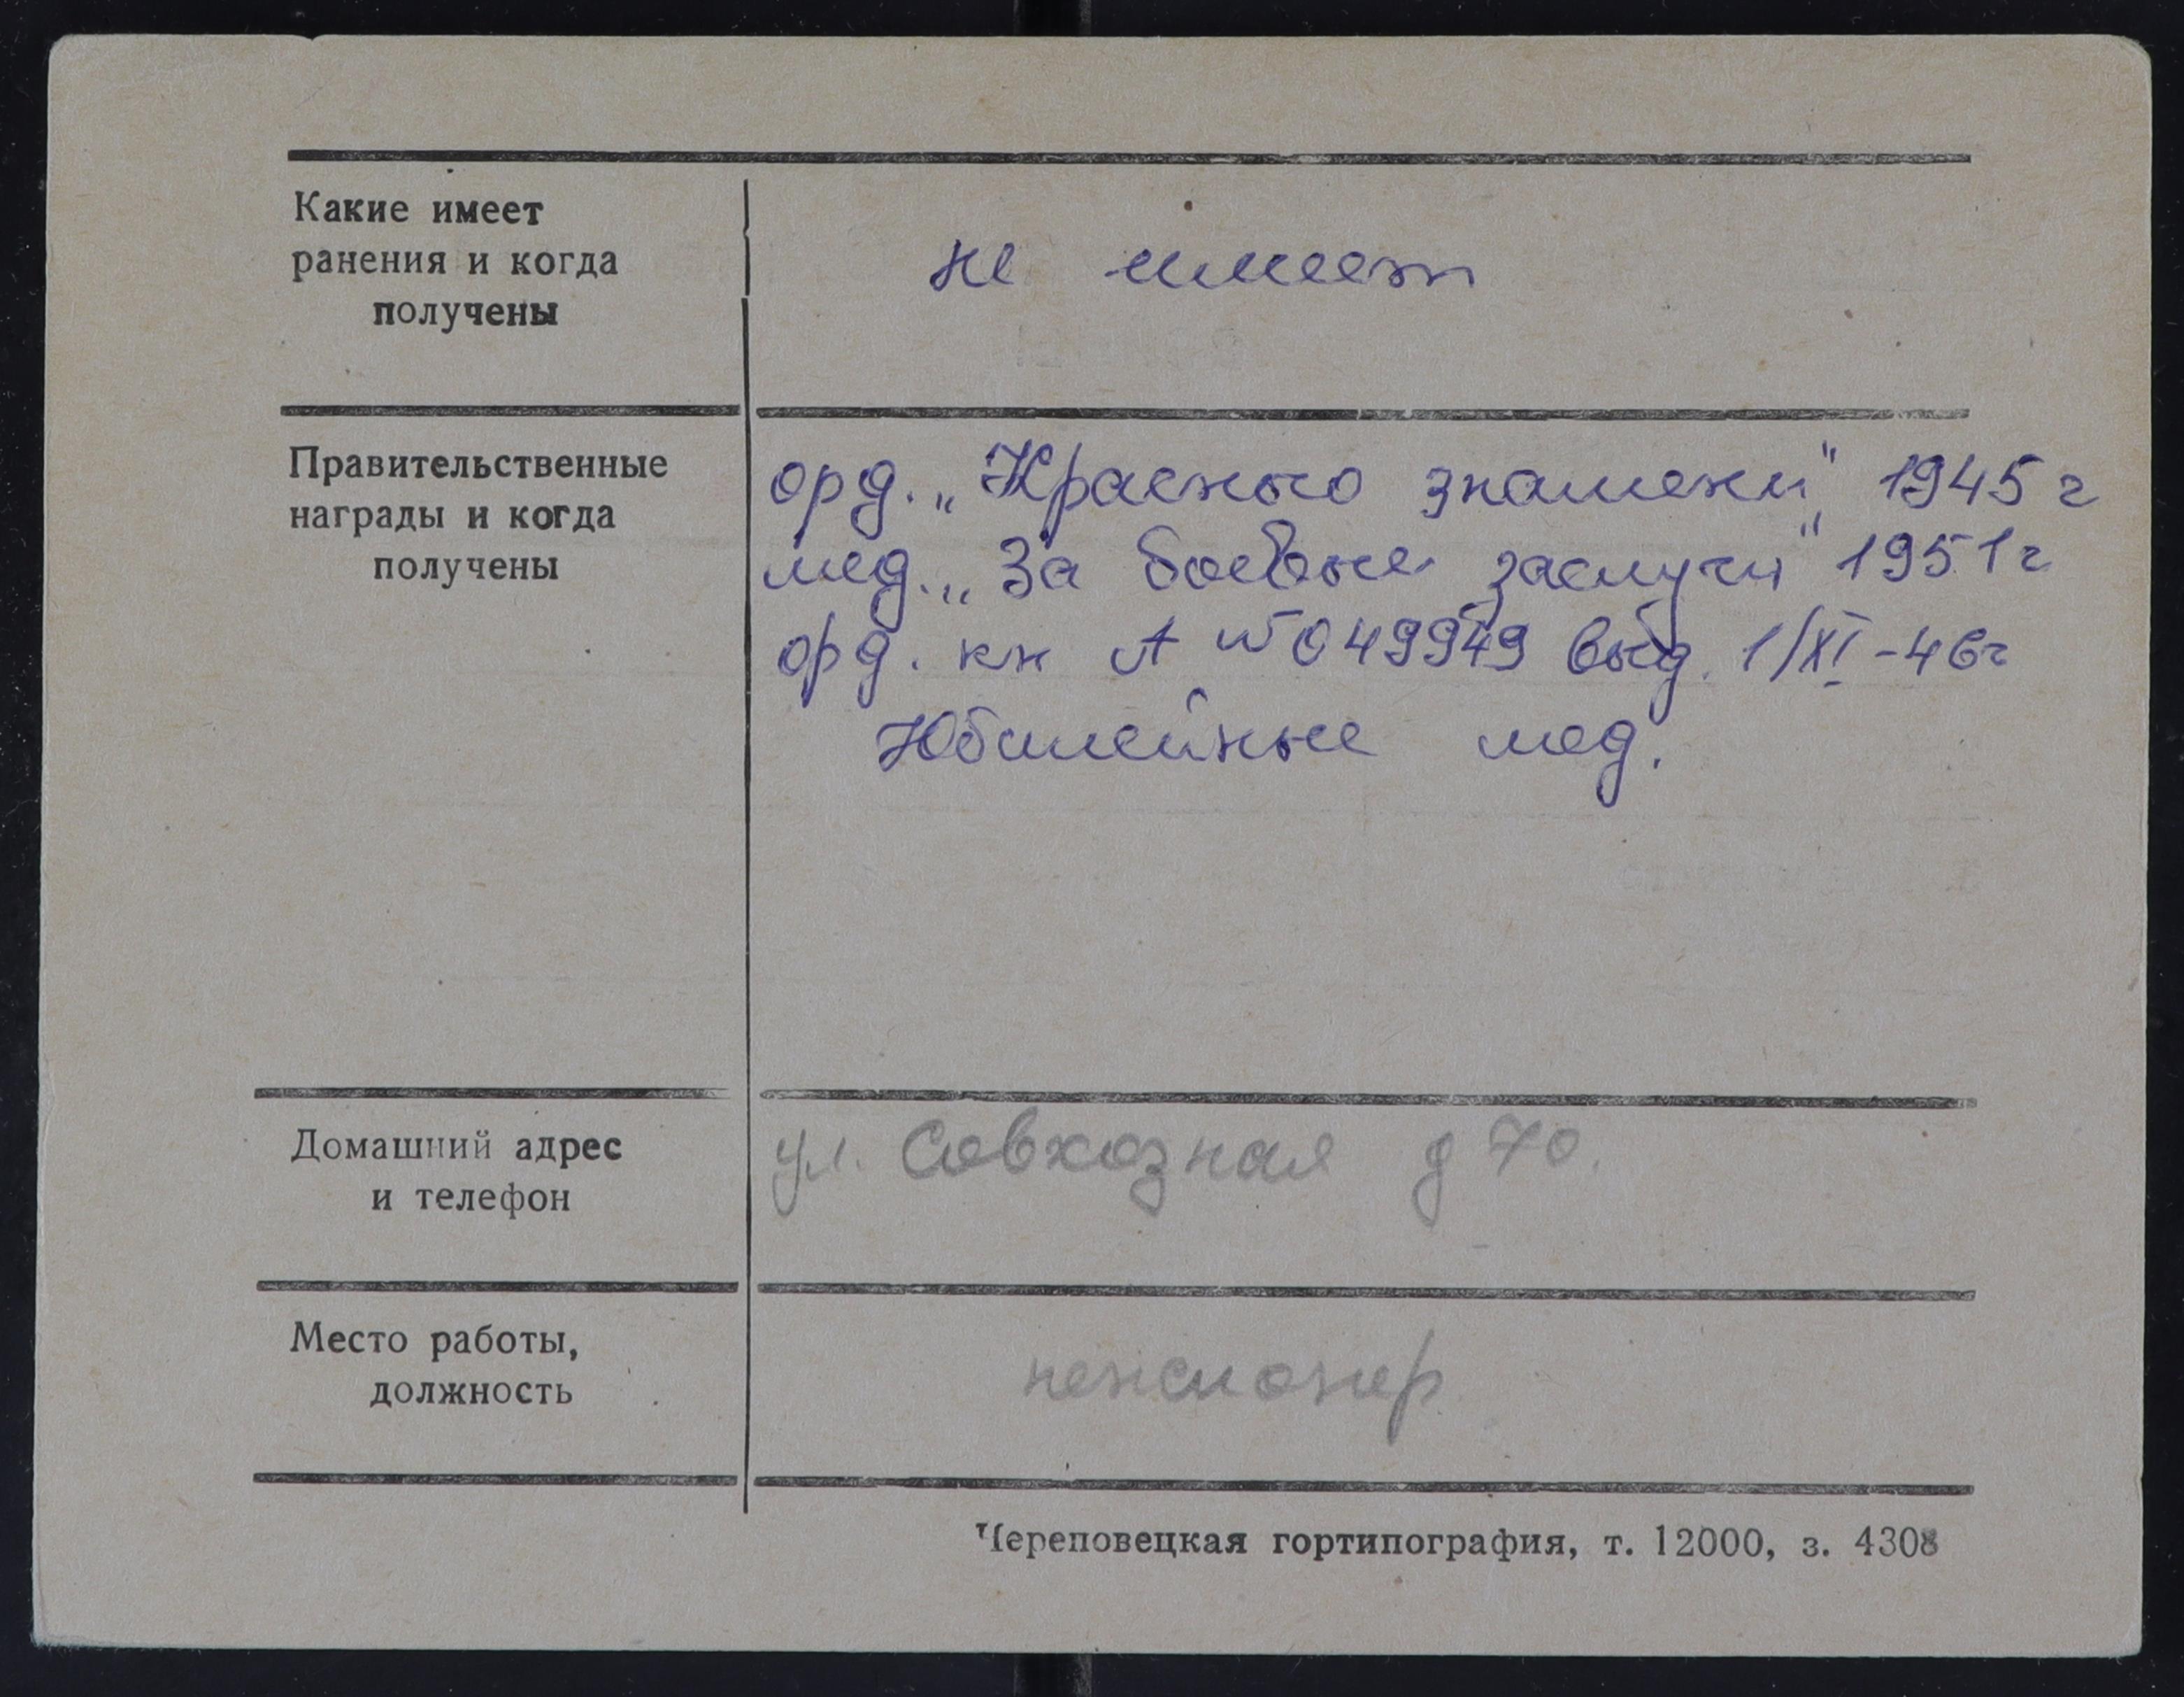 Какие имеет
ранения и когда
получены
не имеет
Правительственные
награды и когда
получены
орд. „Красного знамени" 1945 г
мед. „За боевые заслуги" 1951 г
орд. кн А № 049949 выд. 1/XI-46г
Юбилейные мед.
Домашний адрес
и телефон
ул. Совхозная д 70.
Место работы,
должность
пенсионер
Череповецкая гортипография, т. 12000, з. 4308